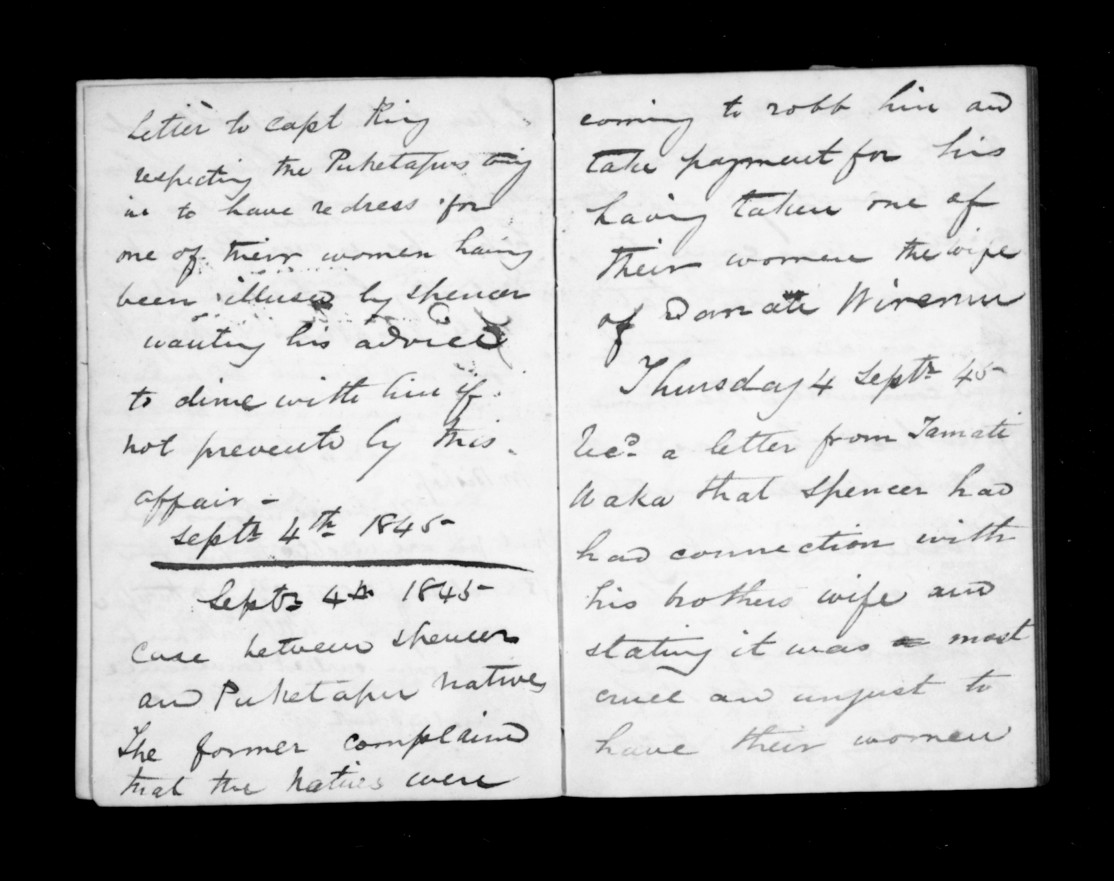 Letter to capt King
respecting the Puketapus
to have redress for
one of their women having
been illused by Spencer
wanting his advice
to dine with him if
not prevente by this
affair -
Septr 4th 1845
Septr 4th 1845
case between Spencer
and Puketapu natives
The former complaind
that the Natives were
coming to robb him and
take payment for his
having taken one of
their women the wife
of Tamati Wiremu
Thursday 4 Septr 45
Recd a letter from Tamati
Waka that Spencer had
had connection with
his brothers wife and
stating it was most
cruel and unjust to
have their women